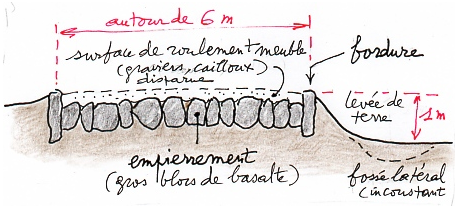 autour de 6 m
surface de roulement meuble
(graviers, cailloux)
disparue
bordure
levée de
terre
1 m
empierrement
(gros blocs de basalte)
fossé latéral
(inconstant